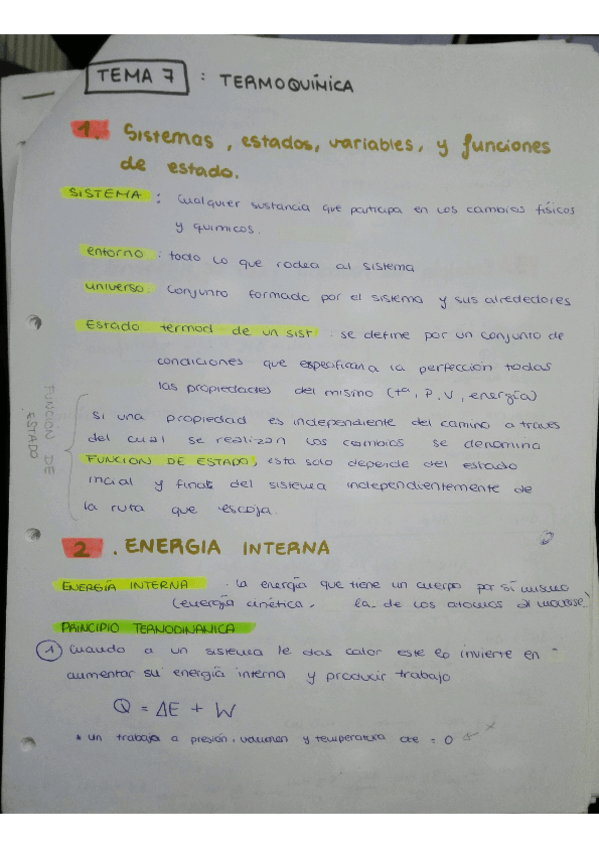 TEMA 7 : TERMOQUÍNICA
1. Sistemas, estados, variables, y funciones
de estado.
SISTEMA : Cualquier sustancia que participa en los cambios físicos
y quimicos.
entorno : todo lo que rodea al sistema
universo: conjunto formado por el sistema y sus alrededores
Estado termod de un sist : se define por un conjunto de
condiciones que especifican a la perfección todas
las propiedades del mismo (tª, P, V, energía)
FUNCION DE
ESTADO
Si una propiedad es independiente del camino a traves
del cual se realizan los cambios se denomina
FUNCION DE ESTADO, esta solo depende del estado
inicial y final del sistema independientemente de
la ruta que escoja.
2. ENERGIA INTERNA
ENERGÍA INTERNA : la energía que tiene un cuerpo por sí mismo
(energía cinética, la de los atomos al moverse)
PRINCIPIO TERMODINANICA
1 Cuando a un sistema le das calor este lo invierte en
aumentar su energía interna y producir trabajo
Q = ΔE + W
* un trabajo a presión, volumen y temperatura cte = 0